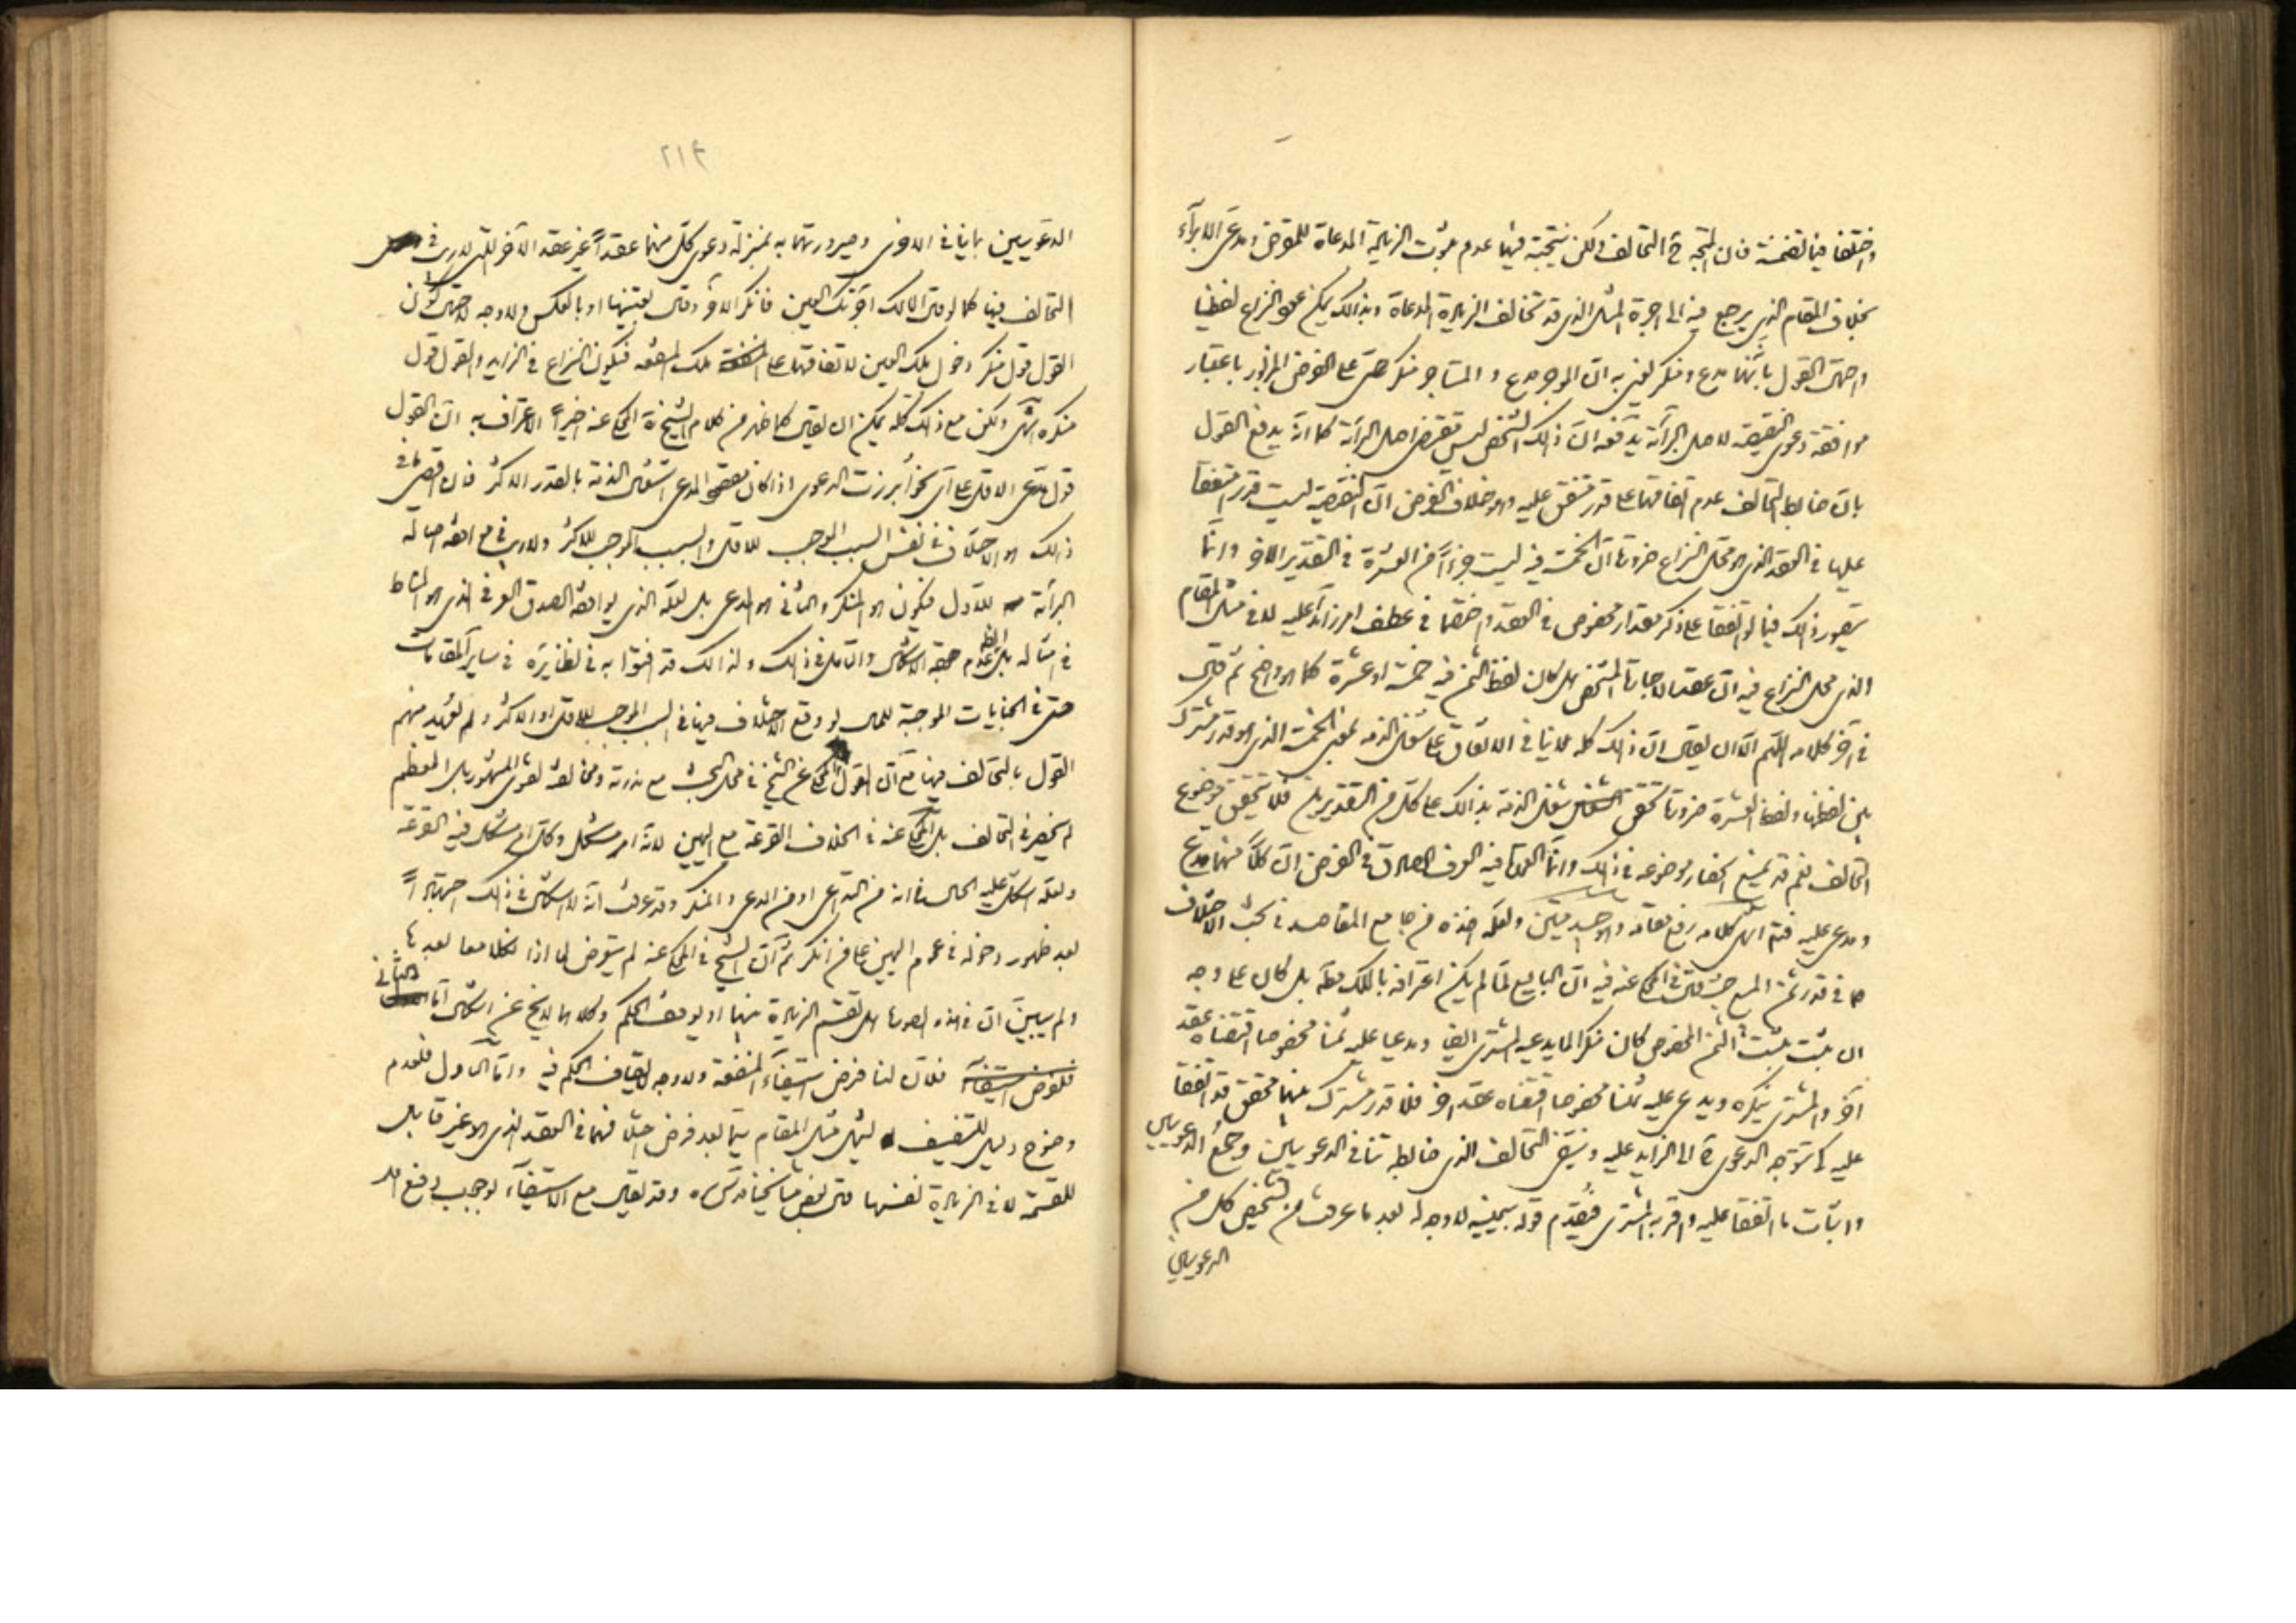 واختلفا فيما تضمنه فان المتجه ح التحالف ولكن نتيجته فيهما عدم ثبوت الزيادة المدعاة للمقرض ومدعى الابراء
بخلاف المقام الذي يرجع فيه الى اجرة المثل الذي قد تخالف الزيادة المدعاة وبذالك يمكن عود النزاع لفظيا
واحتمال القول بانهما مدع ومنكر لغيره ان الموجر مدع والمستاجر منكر حتى على الفرض المزبور باعتبار
موافقة دعوى النقيصة لاصل البرائة يدفعه ان ذلك التشخص ليس مقتضى اصل البرائة كما انه يدفع القول
بان ضابط التحالف عدم اتفاقهما على قدر متفق عليه وهو خلاف الفرض ان النقيصة ليست قدرا متفقا
عليها في العقد الذي هو محل النزاع ضرورة ان الخمسة فيه ليست جزءا من العشرة في التقدير الاخر وانما
يتصور ذلك فيما لو اتفقا على ذكر مقدار مخصوص في العقد واختلفا في عطف امر زائد عليه لا في مثل المقام
الذي محل النزاع فيه ان عقد الاجارة المشخص هل كان لفظ الثمن فيه خمسة او عشرة كما هو واضح ثم قال
في اخر كلامه اللهم الا ان يقال ان ذلك كله لا ينافي الاتفاق على شغل الذمة بمعنى الخمسة الذي هو قدر مشترك
بين لفظها ولفظ العشرة ضرورة تحقق شغل الذمة بذالك على كل من التقديرين فلا يتحقق موضوع
التحالف نعم قد يمنع انحصار موضوعه في ذلك وانما المدار فيه العرف الصادق في الفرض ان كلا منهما مدع
ومدعى عليه فتم انتهى كلامه رفع مقامه وهو جيد متين ولعله اخذه من جامع المقاصد في بحث الاختلاف
في قدر ثمن المبيع حيث قال في المحكى عنه فيه ان البايع لما لم يكن اعترافه بالملك مطلقا بل كان على وجه
ان ثبت يثبت الثمن المخصوص كان منكرا لما يدعيه المشترى ايضا ومدعيا عليه ثمنا مخصوصا اقتضاه عقد
اخر والمشترى ينكره ويدعى عليه ثمنا مخصوصا اقتضاه عقد اخر فلا قدر مشترك بينهما محقق قد اتفقا
عليه كى تتوجه الدعوى ح الى الزايد عليه وينتفى التحالف الذي ضابطه تنافي الدعويين وجمع الدعويين
واثبات ما اتفقا عليه واقر به المشترى فيقدم قوله بيمينه لا وجه له بعد ما عرفت من تشخيص كل من
الدعويين
٢١٤
الدعويين بما ينافي الاخرى وصيرورتهما به بمنزلة دعوى كل منهما عقدا غير عقد الاخر الذي لا ريب في
التحالف فيه كما لو قال المالك اجرتك العين فانكر الاخر وقال بعتنيها او بالعكس ولا وجه لاحتمال كون
القول قول منكر دخول تلك العين لاتفاقهما على تلك المنفعة فيكون النزاع في الزايد والقول قول
منكره انتهى ولكن مع ذلك كله يمكن ان يقال كما ظهر من كلام الشيخ ره المحكى عنه اخيرا الاعتراف به ان القول
قول مدعى الاقل على اى نحو ابرزت الدعوى اذا كان مقصود المدعى اشتغال الذمة بالقدر الاكثر فان اقصى ما في
ذلك هو الاختلاف في نفس السبب الموجب للاقل والسبب الموجب للاكثر ولا ريب في موافقة اصالة
البرائة للاول فيكون هو المنكر والثاني هو المدعى بل لعله الذي يوافقه الصدق العرفي الذي هو المناط
في امثاله بل الظ عدم جهة الاشكال والتامل في ذلك ولذالك قد افتوا به في نظايره في ساير المقامات
حتى في الجنايات الموجبة للمال لو وقع الاختلاف فيها في السبب الموجب للاقل او الاكثر ولم يعهد منهم
القول بالتحالف فيها مع ان القول المحكى عن الشيخ في محل البحث مع ندرته ومخالفته لفتوى المشهور بل المعظم
لم ينحصر في التحالف بل المحكى عنه في الخلاف القرعة مع اليمين لانه امر مشكل وكل امر مشكل فيه القرعة
ولعله اشكل عليه الحال في انه من التداعى او من المدعى والمنكر وقد عرفت انه لا اشكال في ذلك اجتهادا
بعد ظهور دخوله في عموم اليمين على من انكر ثم ان الشيخ في المحكى عنه لم يتعرض لما اذا نكلا معا بعدها
ولم يبين ان في هذه الصورة هل تقسم الزيادة بينهما او يوقف الحكم وكلاهما لا يخ عن اشكال اما الثاني
فلان لنا فرض استيفاء المنفعة ولا وجه لايقاف الحكم فيه واما الاول فلعدم
وضوح دليل للتنصيف ليشمل مثل المقام سيما بعد فرض اختلافهما في العقد الذي هو غير قابل
للقسمة لا في الزيادة نفسها قال بعض مشايخنا قدس سره وقد يقال مع الاستيفاء لوجوب دفع اقل